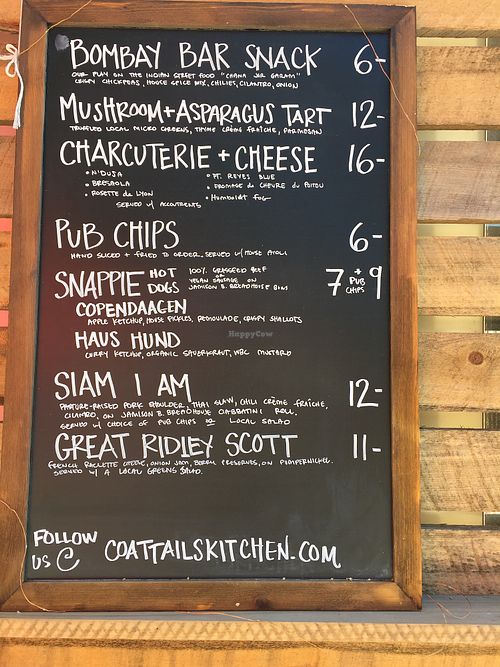 BOMBAY BAR SNACK 6-
OUR PLAY ON THE INDIAN STREET FOOD "CHANA JOR GARAM"
CRISPY CHICKPEAS, HOUSE SPICE MIX, CHILIES, CILANTRO, ONION
MUSHROOM + ASPARAGUS TART 12-
TRUFFLED LOCAL MICRO GREENS, THYME CRÈME FRAÎCHE, PARMESAN
CHARCUTERIE + CHEESE 16-
• N'DUJA • PT. REYES BLUE
• BRESAOLA • FROMAGE de CHEVRE du POITOU
• ROSETTE de LYON • HUMBOLDT FOG
SERVED W/ ACCOUTREMENTS
PUB CHIPS 6-
HAND SLICED + FRIED TO ORDER, SERVED W/ HOUSE AIOLI
SNAPPIE HOT DOGS 7 + PUB CHIPS 9
100% GRASSFED BEEF
OR VEGAN SAUSAGE ON
JAMISON B. BREADHOUSE BUNS
COPENDAAGEN
APPLE KETCHUP, HOUSE PICKLES, REMOULADE, CRISPY SHALLOTS
HAUS HUND
CURRY KETCHUP, ORGANIC SAUERKRAUT, WBC MUSTARD
SIAM I AM 12-
PASTURE-RAISED PORK SHOULDER, THAI SLAW, CHILI CRÈME FRAÎCHE,
CILANTRO, ON JAMISON B. BREADHOUSE CIABBATINI ROLL.
SERVED W/ CHOICE OF PUB CHIPS OR LOCAL SALAD
GREAT RIDLEY SCOTT 11-
FRENCH RACLETTE CHEESE, ONION JAM, BERRY PRESERVES, ON PUMPERNICKEL.
SERVED W/ A LOCAL GREENS SALAD.
FOLLOW
US @ COATTAILSKITCHEN.COM
HappyCow